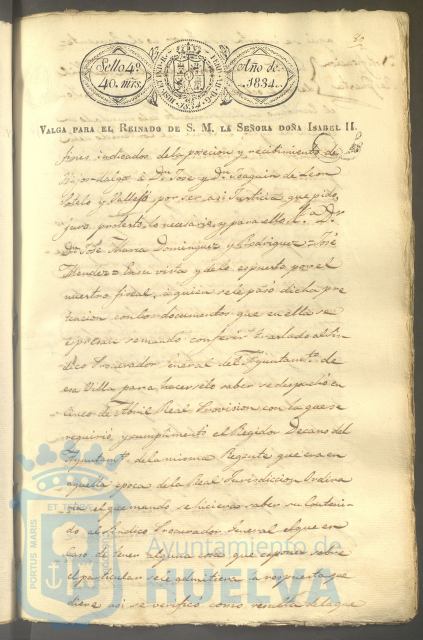 Sello 4º
40. mrs.
HISPANIARUM REX
Año de
1834.
VALGA PARA EL REINADO DE S. M. LA SEÑORA DOÑA ISABEL II.
fines indicados de la posicion y recibimiento de
Hijos-dalgo a Dn. Jose y Dn. Joaquin de Leon
Sotelo y Vallejo por ser asi Justicia que pido
juro, protesto lo necesario, y para ello &.a Dr.
Dn. Jose Maria Dominguez y Rodriguez = Jose
Mendez = En su vista y de lo espuesto por el
nuestro fiscal, á quien se le pasó dicha pre
tencion con los documentos que en ella se
espresan se mandó conferir traslado al Sin
dico Procurador General del Ayuntamto. de
esa Villa para hacerselo saber se despachó en
cinco de Abril Real Provision con la que se
requirió, y cumplimentó el Regidor Decano del
Ayuntamto. de la misma Regente que era en
aquella epoca de la Real Jurisdiccion Ordina
ria el que mandó se hiciera saber su conteni
do al Sindico Procurador General el que en
caso de tener alguna cosa que esponer sobre
el particular se le admitiera la respuesta que
diere asi se verificó como resulta de la que
PORTUS MARIS
ET TERRÆ
Ayuntamiento de
HUELVA